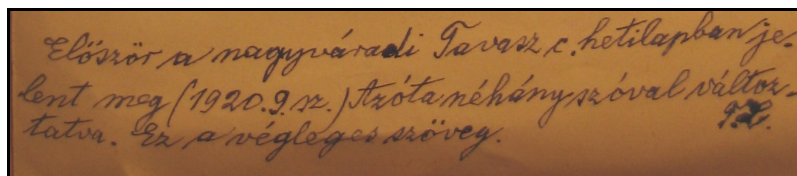 Először a nagyváradi Tavasz c. hetilapban je-
lent meg (1920.9. sz.) Azóta néhány szóval változ-
tatva. Ez a végleges szöveg.